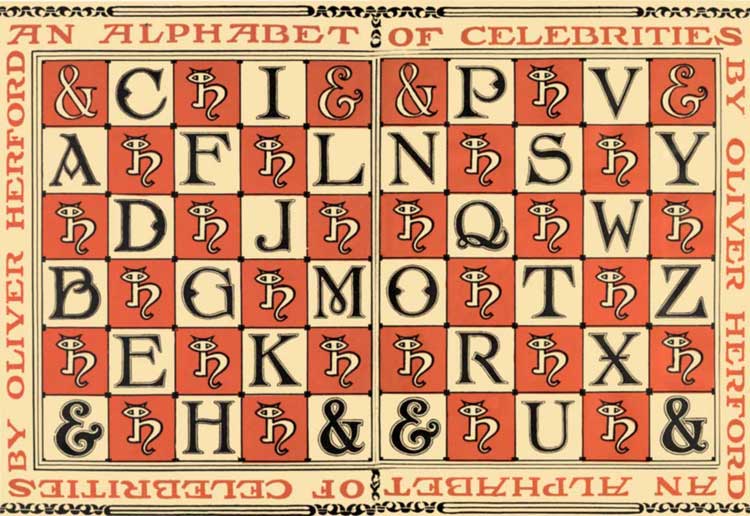 AN ALPHABET OF CELEBRITIES
BY OLIVER HERFORD
BY OLIVER HERFORD
& C h I & & P h V &
A h F h L N h S h Y
h D h J h h Q h W h
B h G h M O h T h Z
h E h K h h R h X h
& h H h & & h U h &
AN ALPHABET OF CELEBRITIES